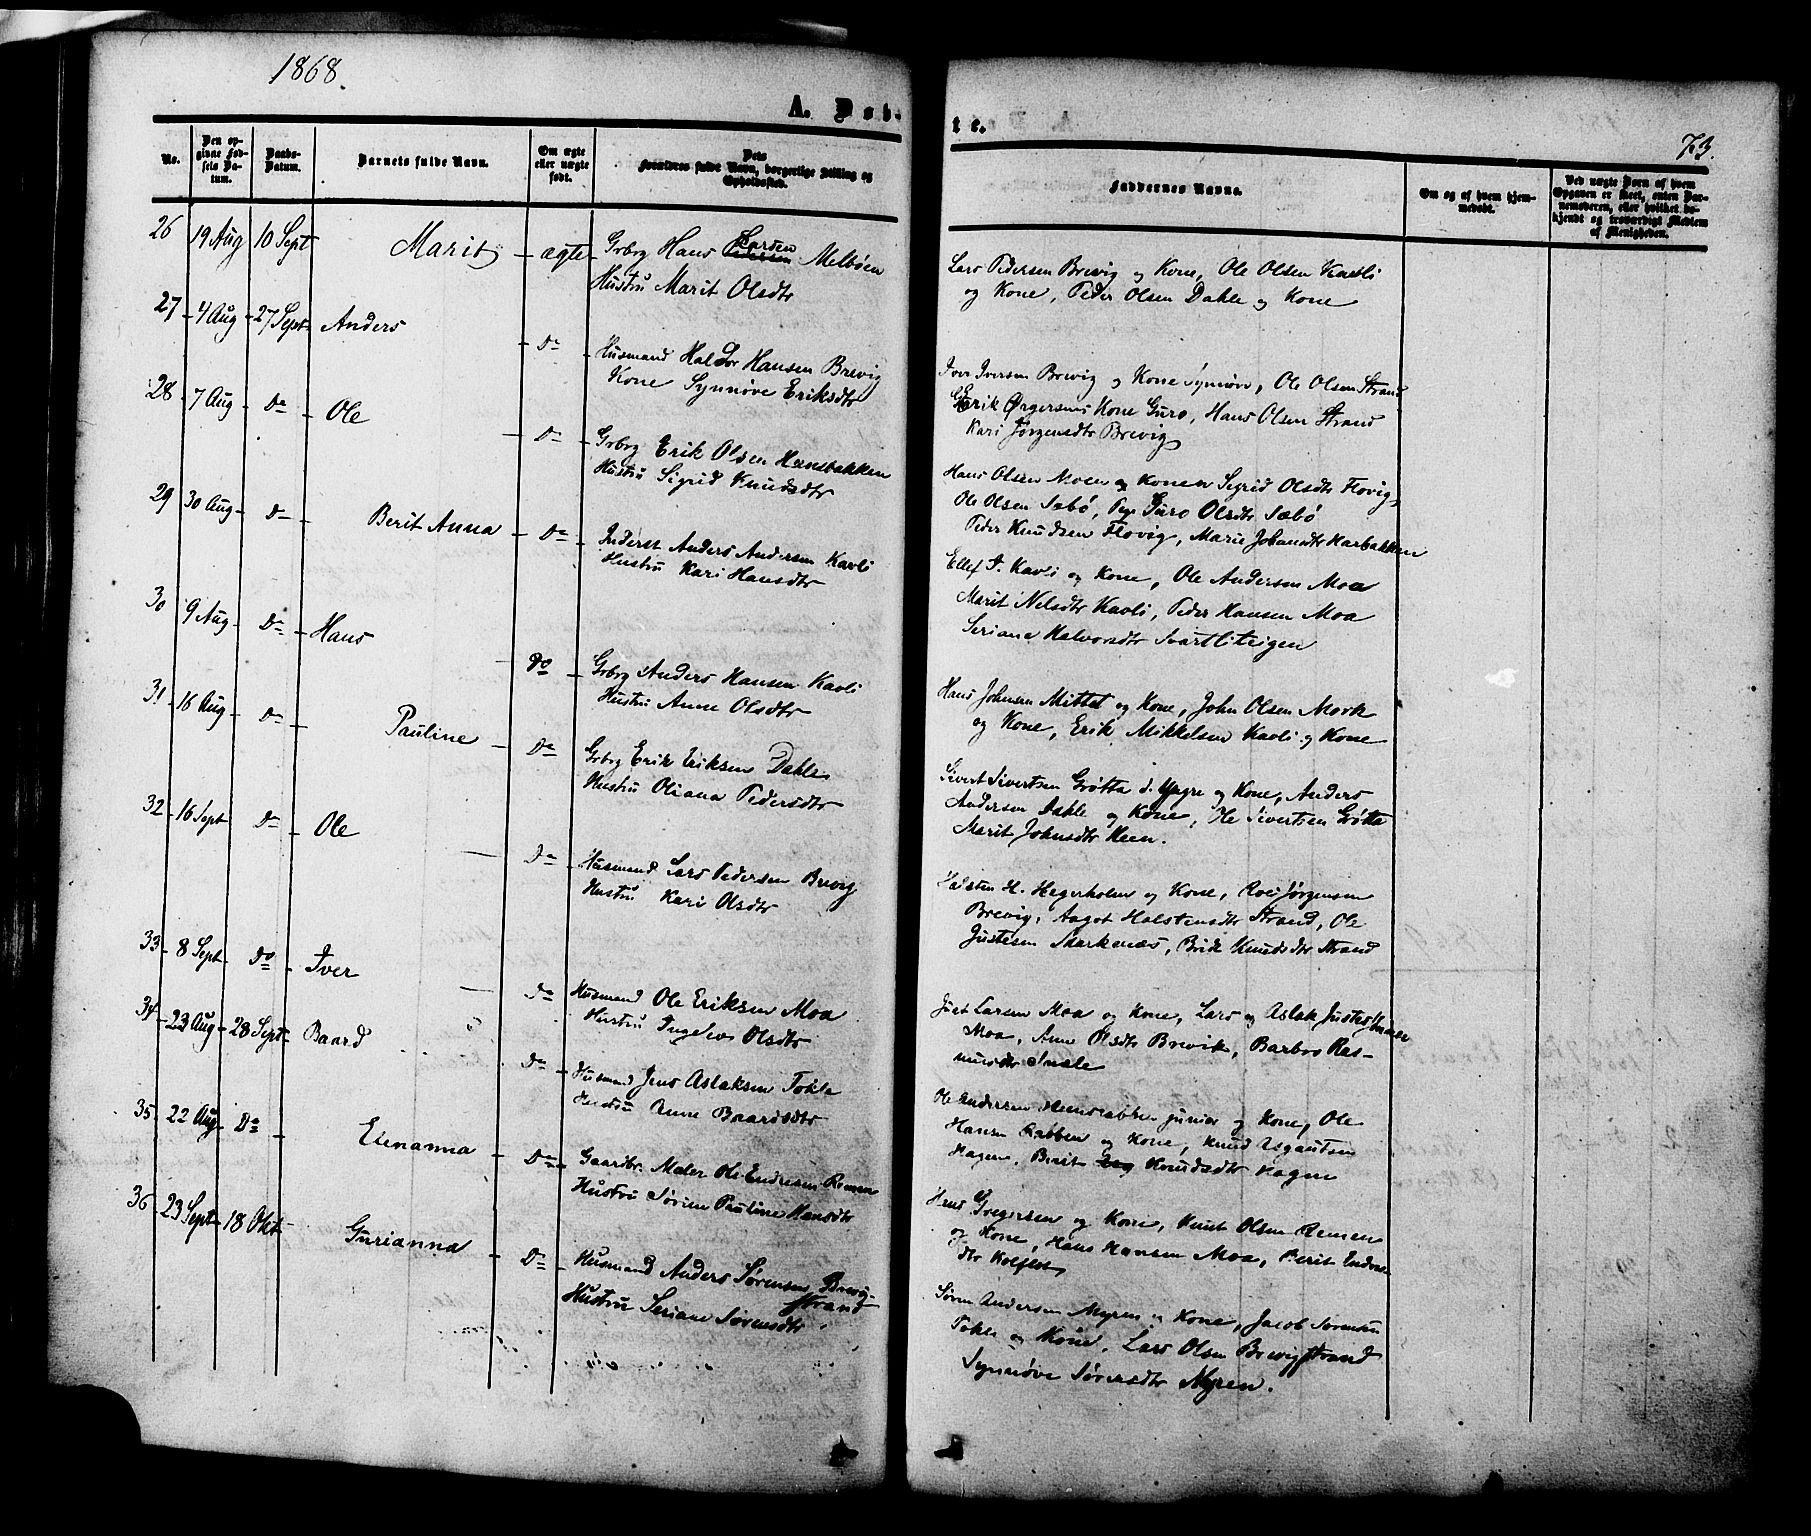 1868.
A. Døb-
te.
73.
No.
Den op-
givne Fød-
sels Da-
tum.
Daabs-
Datum.
Barnets fulde Navn.
Om ægte
eller uægte
født.
Dets
Forældres fulde Navn, borgerlige Stilling og
Opholdssted.
Faddernes Navne.
Om og af hvem hjem-
medøbt.
Ved uægte Børn af hvem
Opgaven er skeet, enten Bar-
nemoderen, eller hvilket be-
kjendt og troværdigt Medlem
af Menigheden.
26 19 Aug 10 Sept Marit ægte Grbrg Hans Larsen Pedersen Melbøen
Hustru Marit Olsdtr
Lars Pedersen Brevig og Kone, Ole Olsen Kavli
og Kone, Peder Olsen Dahle og Kone
27 4 Aug 27 Sept Anders Do Husmand Haldor Hansen Brevig
Kone Synnøve Eriksdtr
Iver Iversen Brevig og Kone Synnøve, Ole Olsen Strand
Kone Guro, Hans Olsen Strand
Kari Jørgensdtr Brevig
28 7 Aug Do Ole Do Grbrg Erik Olsen Hansbakken
Hustru Sigrid Knudsdtr
Hans Olsen Moen og Konen Sigrid Olsdtr Flovig
Ole Olsen Sæbø, Pige Guro Olsdtr Sæbø
Peder Knudsen Flovig, Marie Johansdtr Karbakken
29 30 Aug Do Berit Anna Do Inderst Anders Andersen Kavli
Hustru Kari Hansdtr
Ellef A. Kavli og Kone, Ole Andersen Moa
Marit Nelsdtr Kavli, Peder Hansen Moa
Seriane Halvorsdtr Svartliteigen
30 9 Aug Do Hans Do Grbrg Anders Hansen Kavli
Hustru Anne Olsdtr
Hans Johnsen Mittet og Kone, John Olsen Mork
og Kone, Erik Mikkelsen Kavli og Kone
31 16 Aug Do Pauline Do Grbrg Erik Eriksen Dahle
Hustru Oliana Pedersdtr
Sivert Sivertsen Grøtta d. yngre og Kone, Anders
Andersen Dahle og Kone, Ole Sivertsen Grøtta
Marit Johnsdtr Heen.
32 16 Sept Do Ole Do Husmand Lars Pedersen Brevig
Hustru Kari Olsdtr
Halsten H. Hegerholm og Kone, Jørgensen
Brevig, Aagot Halstensdtr Strand, Ole
Justesen Markenæs, Brit Knudsdtr Strand
33 8 Sept Do Iver Do Husmand Ole Eriksen Moa
Hustru Ingeles Olsdtr
Just Larsen Moa og Kone, Lars og Aslak Justes
Moa, Anne Olsdtr Brevik, Barbro Ras-
musdtr
34 23 Aug 28 Sept Baard Do Husmand Jens Aslaksen Tokle
Hustru Anne Baardsdtr
Ole Andersen junior og Kone, Ole
Hansen Rabben og Kone, Knud Asgautsen
Hagen, Berit Knudsdtr Hagen
35 22 Aug Do Elenanna Do Gaardbr. Maler Ole Endresen Remen
Hustru Sørine Pauline Hansdtr
Hans Gregersen og Kone, Knut Olsen Remen
og Kone, Hans Hansen Moa, Berit Endres-
dtr Kolflot
36 23 Sept 18 Okt Gurianna Do Husmand Anders Sørensen Brevig-
strand
Hustru Seriane Sørensdtr
Søren Andersen Myren og Kone, Jacob Sørensen
Tokle og Kone, Lars Olsen Brevigstrand
Synnøve Sørensdtr Myren.